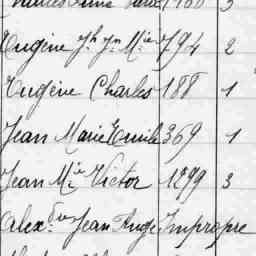 Eugène Jh Jn Mie 794 2
Eugène Charles 188 1
Jean Marie Emile 369 1
Jean Mie Victor 1299 3
Alex.dre Jean Ange Impropre